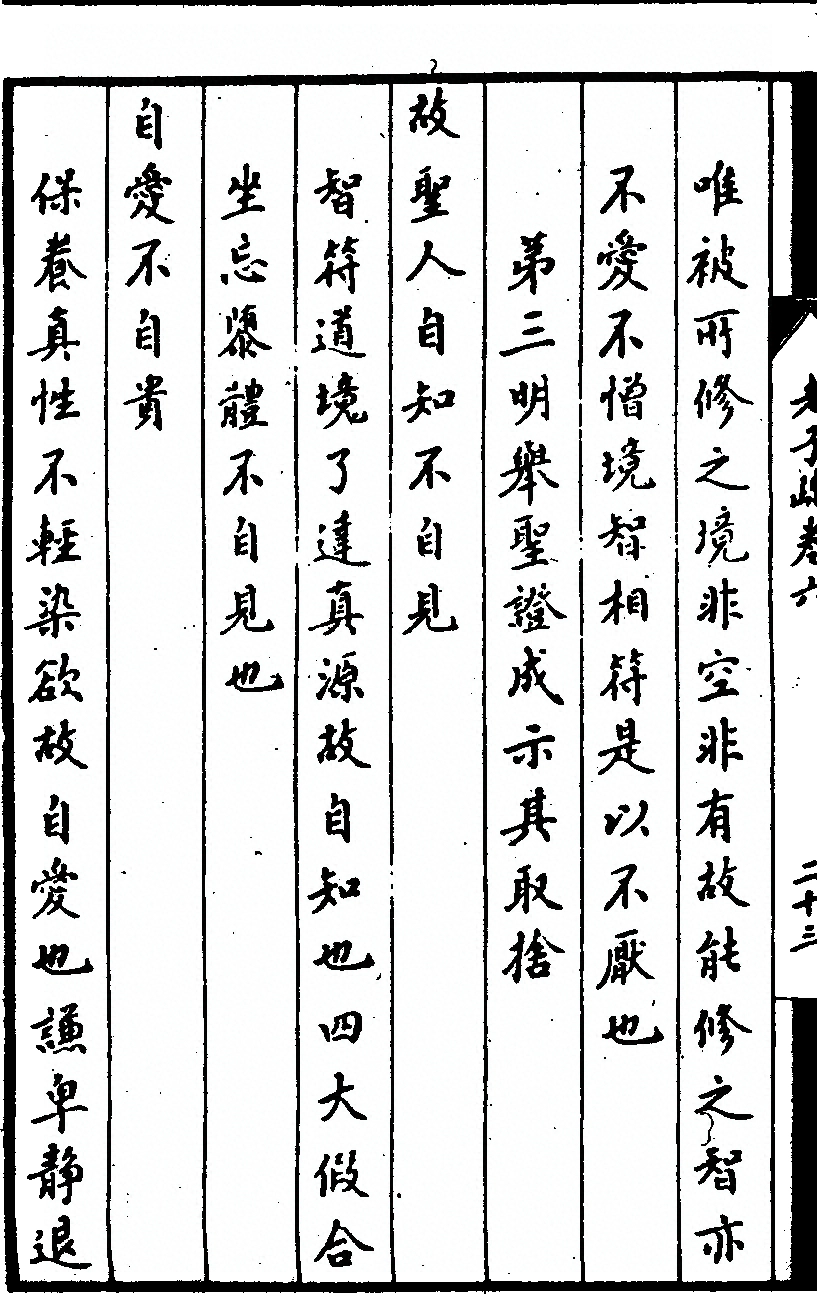 老子疏卷六　二十三
唯被所修之境非空非有故能修之智亦
不愛不憎境智相符是以不厭也
第三明舉聖證成示其取捨
故聖人自知不自見
智符道境了達真源故自知也四大假合
坐忘隳體不自見也
自愛不自貴
保養真性不輕染欲故自愛也謙卑靜退